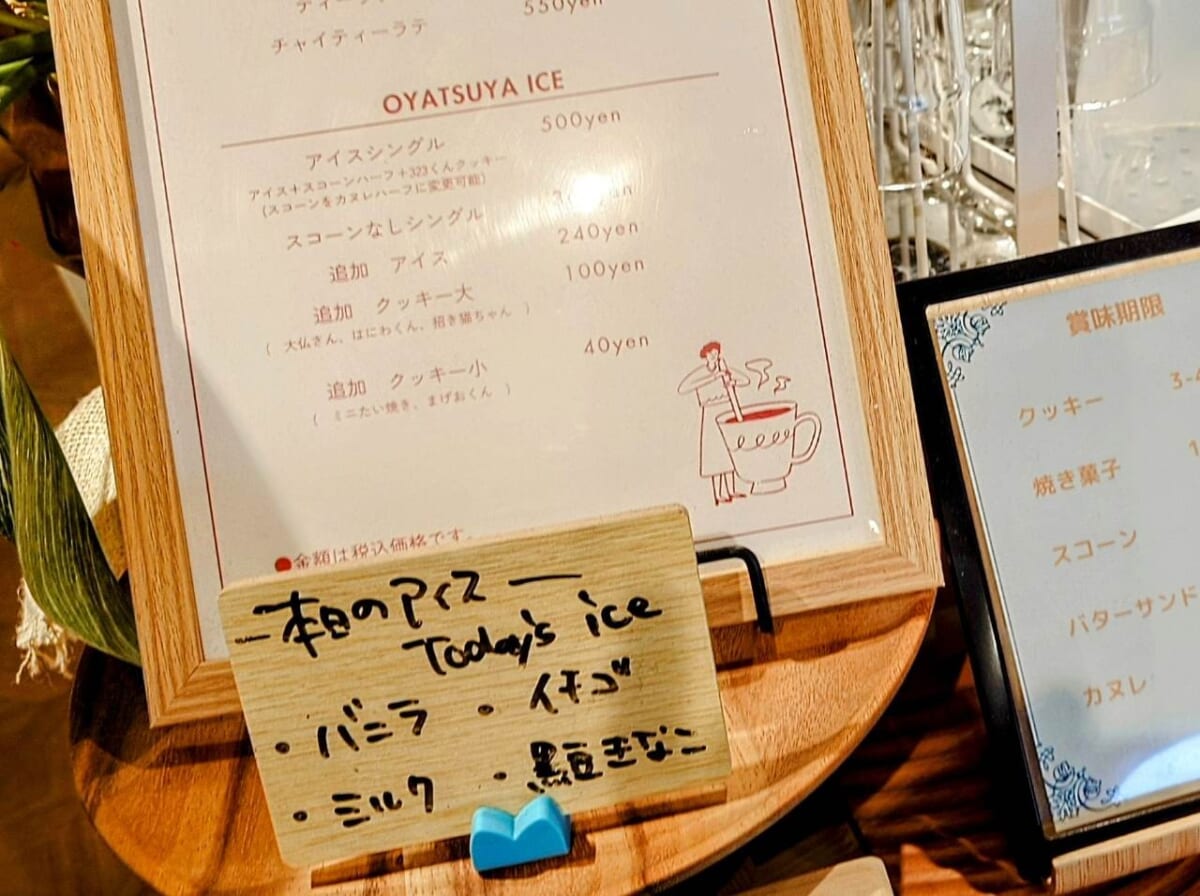 550yen
チャイティーラテ
OYATSUYA ICE
アイスシングル 500yen
アイス+スコーンハーフ+323くんクッキー
(スコーンをカヌレハーフに変更可能)
スコーンなしシングル
追加 アイス 240yen
追加 クッキー大 100yen
( 大仏さん、はにわくん、招き猫ちゃん )
追加 クッキー小 40yen
( ミニたい焼き、まげおくん )
●金額は税込価格です。
本日のアイス
Today's ice
・バニラ ・イチゴ
・ミルク ・黒豆きなこ
賞味期限
クッキー 3-4
焼き菓子 1
スコーン
バターサンド
カヌレ